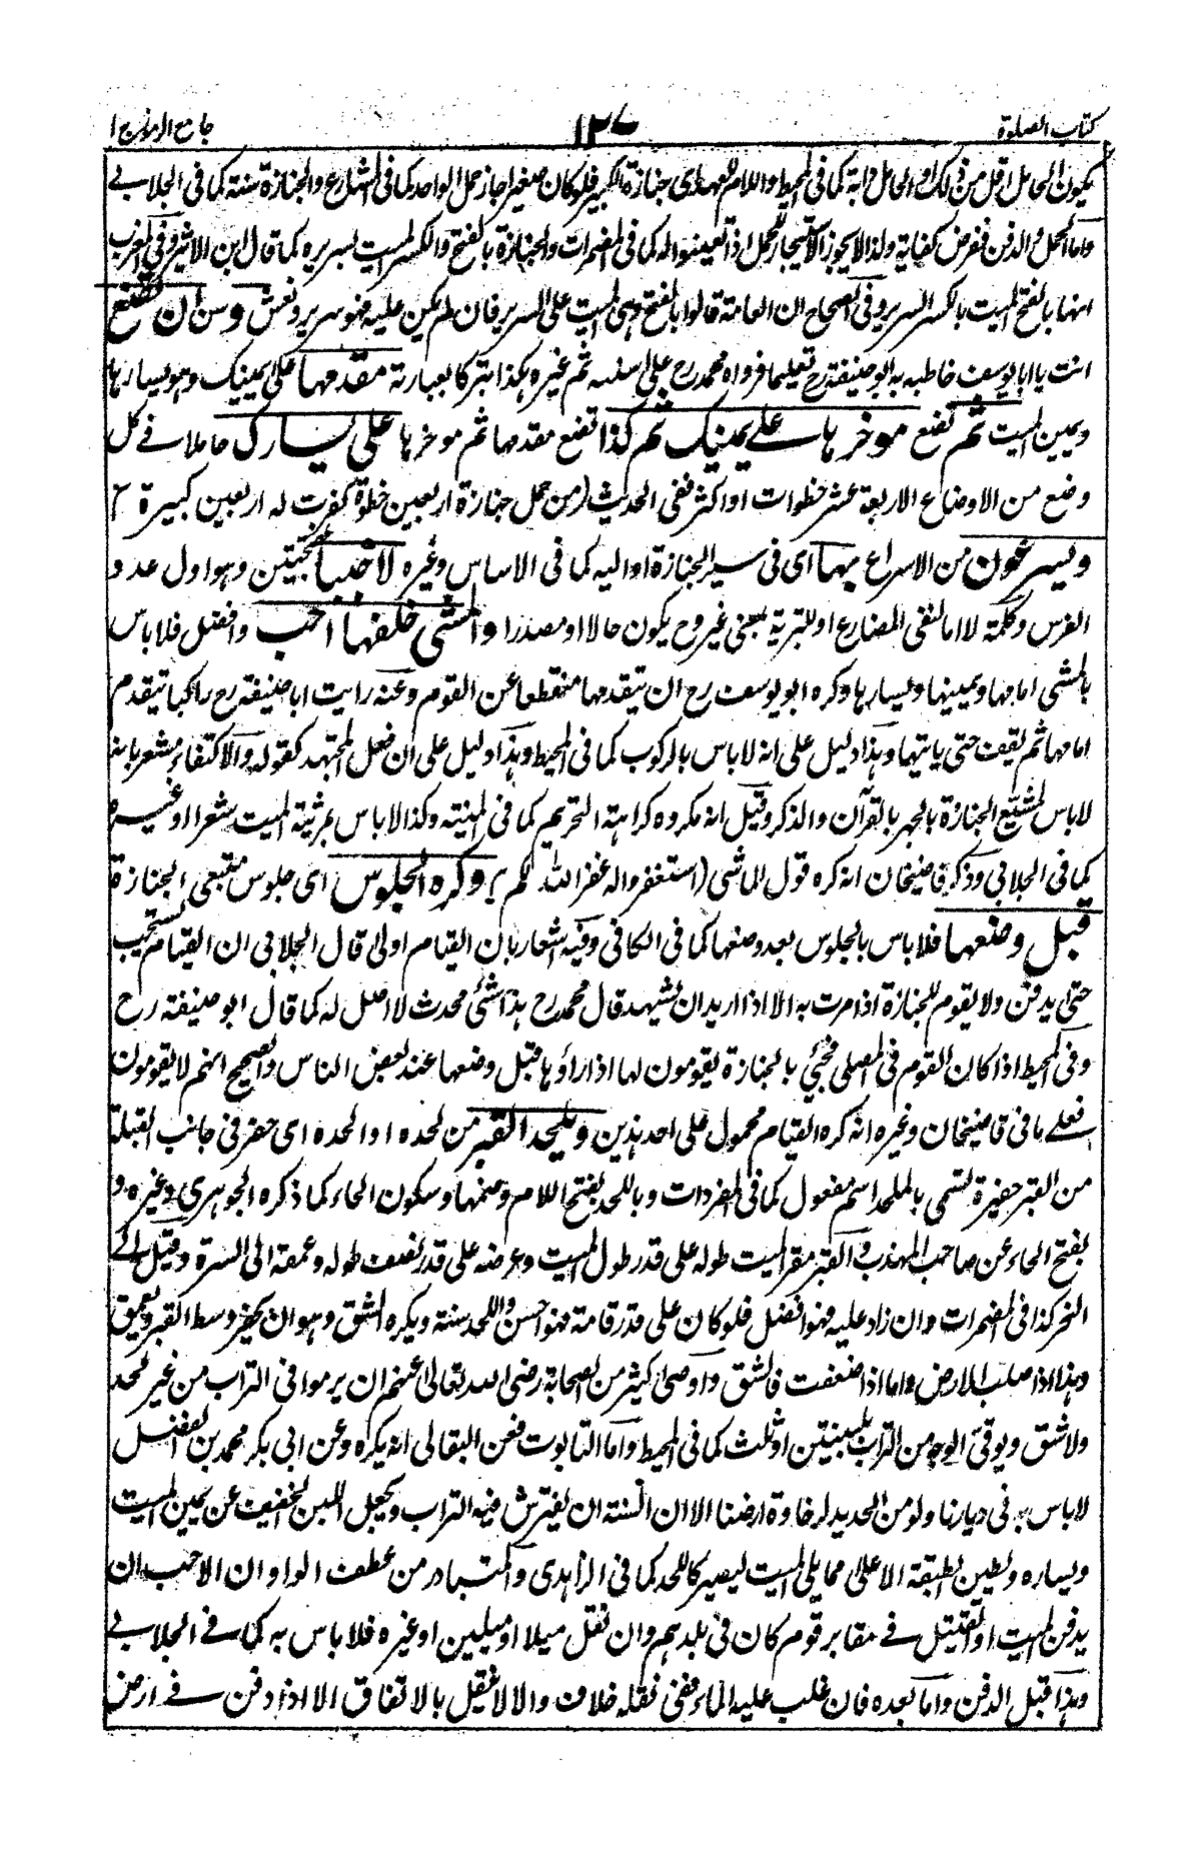 كتاب الصلوة
١٢٧
جامع الرموز ج ١
يكون الحامل اقل من ذلك او الحامل دابة كما فى المحيط واللام للعهد اى جنازة الكبير فلو كان صغيرا جاز حمل الواحد كما فى الشارع والجنازة سنة كما فى الجلابى
واما الحمل والدفن ففرض كفاية ولذا لا يجوز الاستيجار للحمل اذا تعينوا له كما فى المضمرات والجنازة بالفتح والكسر الميت بسريره كما قال ابن الاثير وفى المغرب
انها بالفتح الميت بالكسر السرير وفى الصحاح ان العامة قالوا بالفتح وهى الميت على السرير فان لم يكن عليه فهو سرير ونعش وسن ان تضع
انت يا ابا يوسف خاطبه به ابو حنيفة رح تعليما فرواه محمد رح على اسلبه ثم غيره هكذا تبركا بعبارته مقدمها على يمينك وهو يسارها
ويمين الميت ثم تضع موخرها على يمينك ثم كذا تضع مقدمها ثم موخرها على يسارك حاملا فى كل
وضع من الاوضاع الاربعة عشر خطوات او اكثر ففى الحديث (من حمل جنازة اربعين خطوة كفرت له اربعين كبيرة)
ويسرعون من الاسراع بها اى فى سير الجنازة او اليه كما فى الاساس وغيره لا خببا بفتحتين وهو اول عدد
الفرس وكلمة لا اما لنفى المضارع او للتبرية بمعنى غير وح يكون حالا او مصدرا والمشى خلفها احب وافضل فلا باس
بالمشى امامها ويمينها ويسارها وكره ابو يوسف رح ان يتقدمها منقطعا عن القوم وعنه رايت ابا حنيفة رح راكبا يتقدم
امامها ثم يقف حتى ياتيها وهذا دليل على انه لا باس بالركوب كما فى المحيط وهذا دليل على ان فعل المجتهد كقوله والاكتفاء مشعر بانه
لا باس لمشيع الجنازة بالجهر بالقرآن والذكر وقيل انه مكروه كراهة التحريم كما فى المنية وكذا لا باس بمرثية الميت شعرا او غيره
كما فى الجلابى وذكر قاضيخان انه كره قول الماشى (استغفروا له غفر الله لكم) وكره الجلوس اى جلوس متبعى الجنازة
قبل وضعها فلا باس بالجلوس بعد وضعها كما فى الكافى وفيه اشعار بان القيام اولى قال الجلابى ان القيام مستحب
حتى يدفن ولا يقوم للجنازة اذا مرت به الا اذا اريد ان يشهد قال محمد رح هذا شئى محدث لا اصل له كما قال ابو حنيفة رح
وفى المحيط اذا كان القوم فى المصلى فجئ بالجنازة يقومون لها اذا راوها قبل وضعها عند بعض الناس والصحيح انهم لا يقومون
فعلى ما فى قاضيخان وغيره انه كره القيام محمول على احد هذين ويلحد القبر من لحده او الحده اى حفر فى جانب القبلة
من القبر حفيرة تسمى بالملحد اسم مفعول كما فى المفردات وباللحد بفتح اللام وضمها وسكون الحاء كما ذكره الجوهرى وغيره و
بفتح الحاء عن صاحب المهذب والقبر مقر الميت طوله على قدر طول الميت وعرضه على قدر نصف طوله وعمقه الى السرة وقيل الى
النحر كذا فى المضمرات وان زاد عليه فهو افضل فلو كان على قدر قامة فهو احسن واللحد سنة ويكره الشق وهو ان يحفر وسط القبر ويعمق
وهذا اذا صلب الارض واما اذا ضعفت فالشق واوصى كثير من الصحابة رضى الله تعالى عنهم ان يرموا فى التراب من غير لحد
ولا شق ويوقى الوجه من التراب بلبنتين او ثلث كما فى المحيط واما التابوت فعن البقالى انه يكره وعن ابى بكر محمد بن الفضل
لا باس به فى ديارنا ولو من الحديد لرخاوة ارضنا الا ان السنة ان يفترش فيه التراب ويجعل اللبن الخفيف عن يمين الميت
ويساره ويطين الطبقة الاعلى مما يلى الميت ليصير كاللحد كما فى الزاهدى والمتبادر من عطف الواو ان الاحب ان
يدفن الميت او القتيل فى مقابر قوم كان فى بلدهم وان نقل ميلا او ميلين او غيره فلا باس به كما فى الجلابى
وهذا قبل الدفن واما بعده فان غلب عليه الماء ففى نقله خلاف والا لا ينقل بالاتفاق الا اذا دفن فى ارض